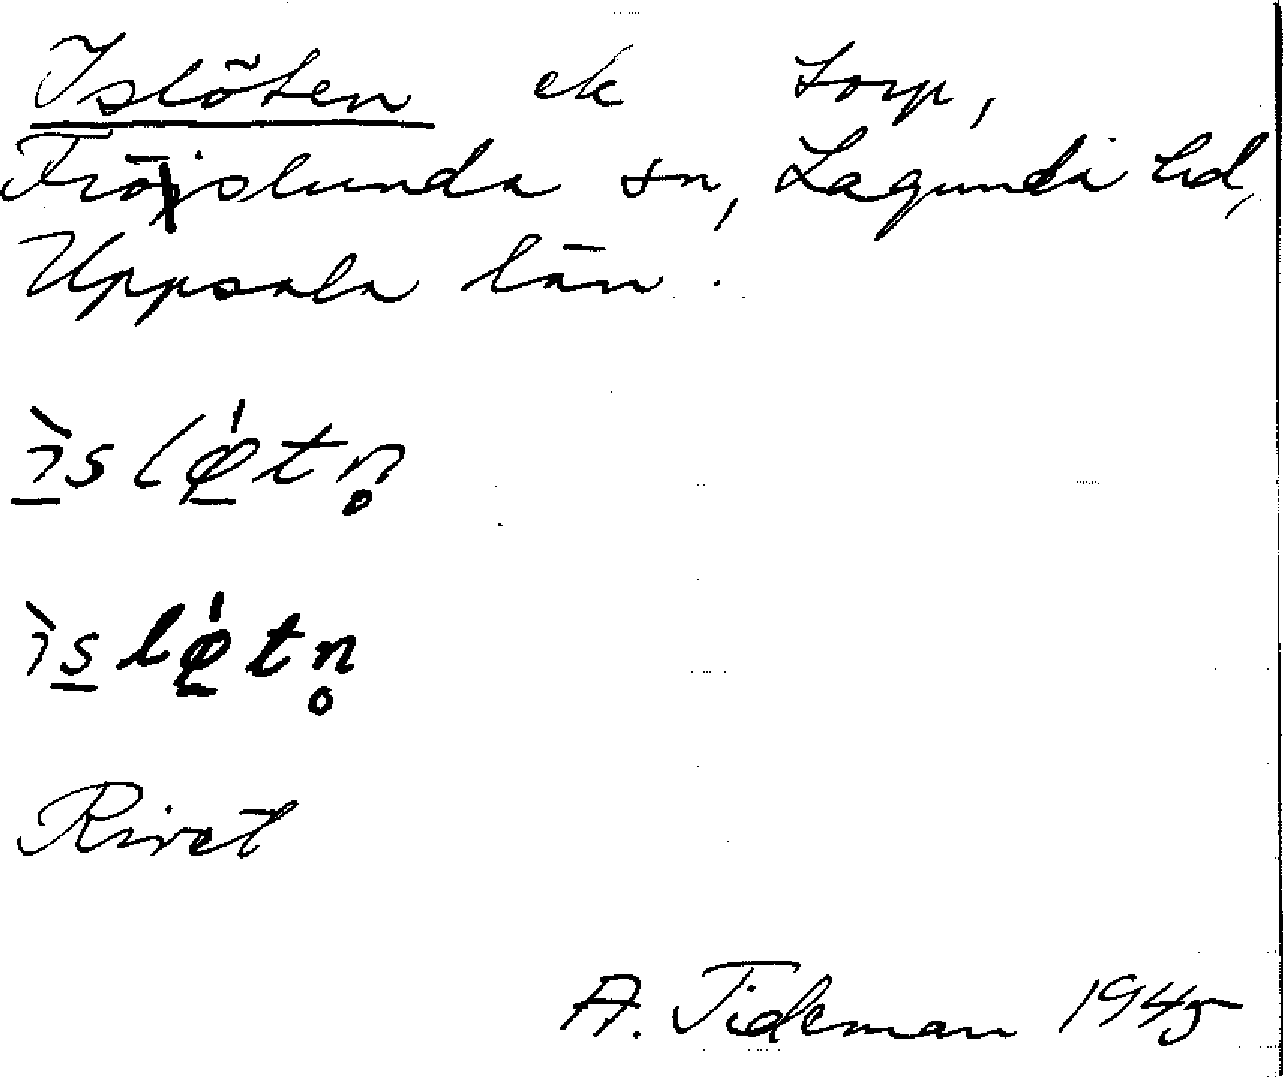 Islöten ek torp,
Fröslunda sn, Lagunda hd,
Uppsala län.
ìslǿ̨tn̥
ìslǿ̨tn̥
Rivet
A. Tideman 1945